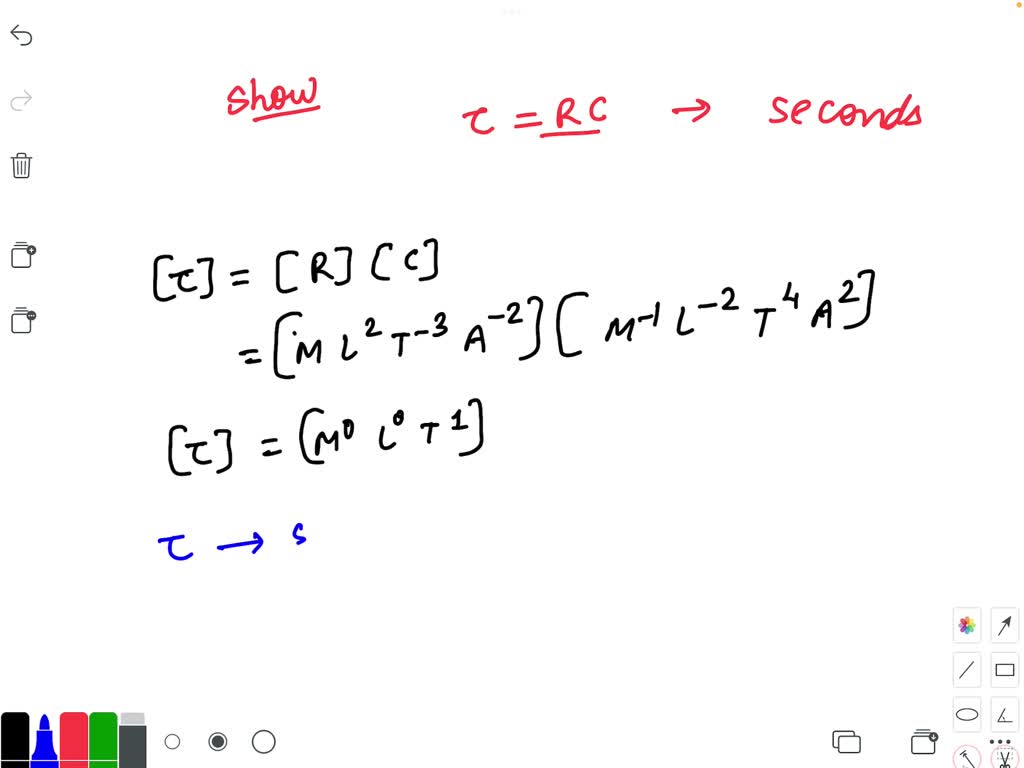 show τ = RC → seconds
[τ] = [R] [C]
= [M L² T⁻³ A⁻²] [M⁻¹ L⁻² T⁴ A²]
[τ] = [M⁰ L⁰ T¹]
τ → s